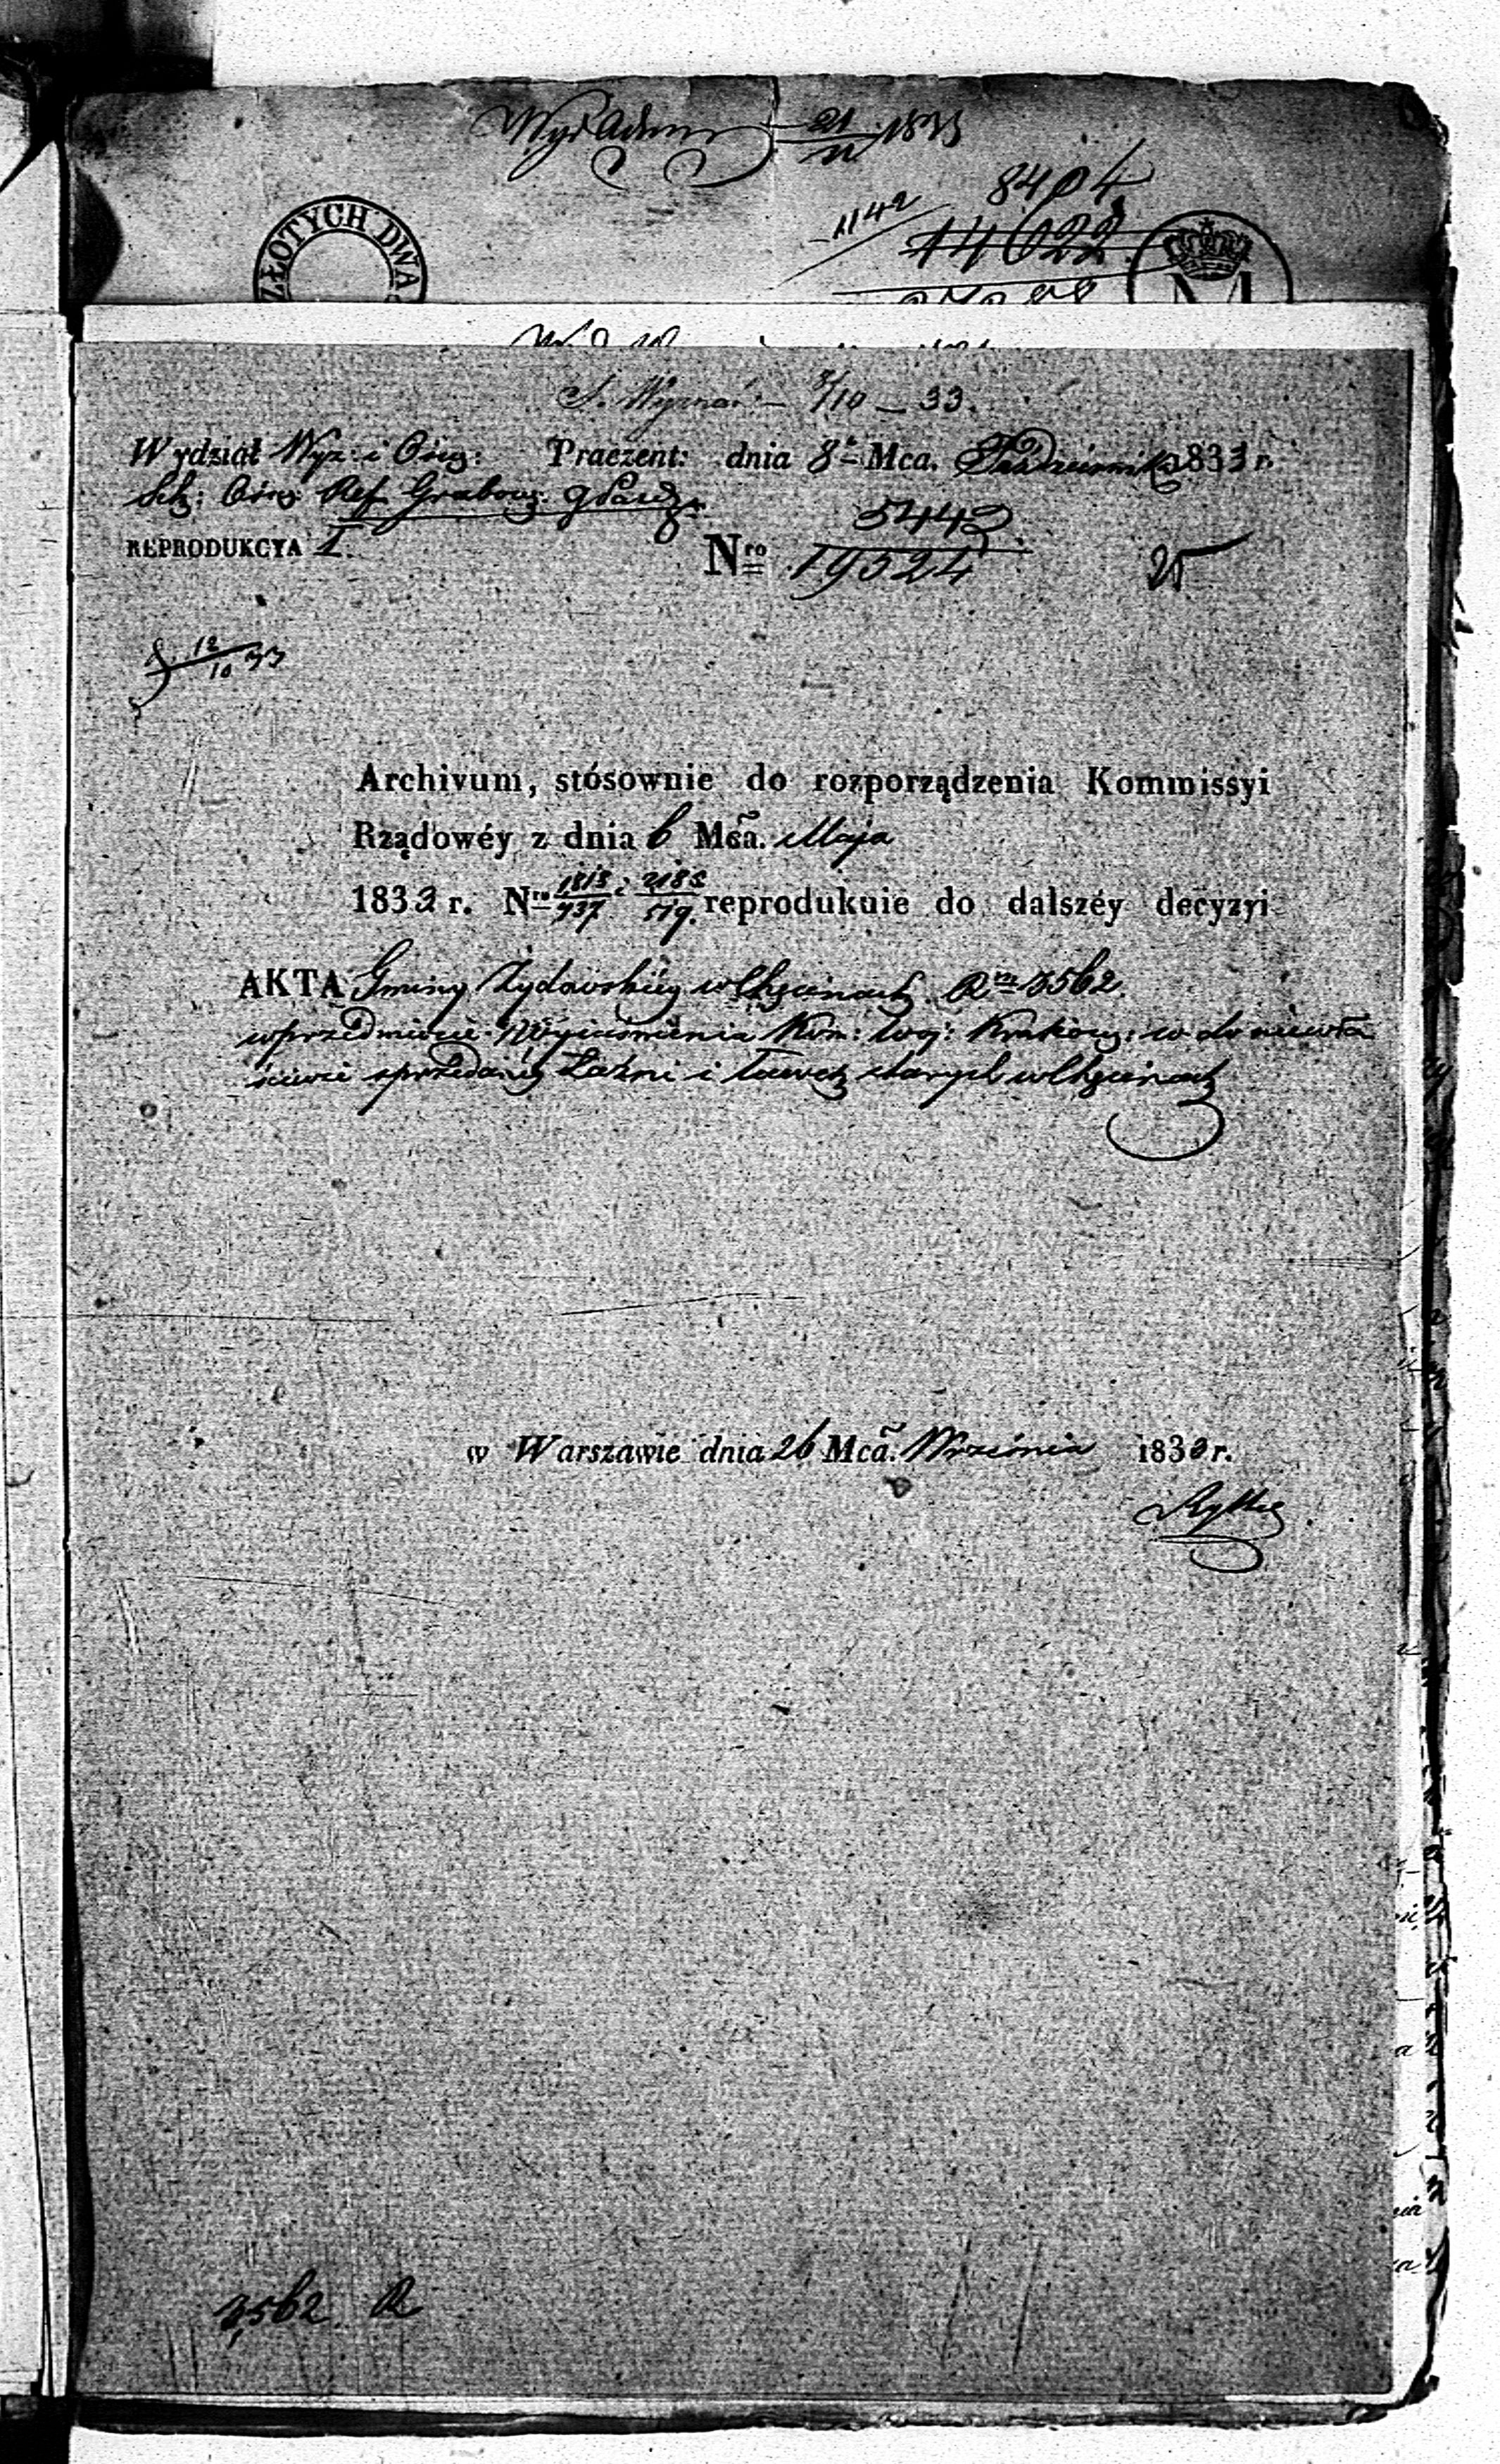 21 1833
11
8404
1142
14022
ZŁOTYCH DWA
S. Wyznań — 8/10 — 33.
Wydział Wyz: i Ośw: Praezent: dnia 8 Mca. Października 1833 r.
Ref Grabow:
REPRODUKCYA I. Nro 5443
19524 25
12
10 33
Archivum, stósownie do rozporządzenia Kommissyi
Rządowéy z dnia 6 Mca. Maja
1833 r. Nro 1818/737 i 2188/519. reprodukuie do dalszéy decyzyi
AKTA Gminy Żydowskiéy w Chęcinach. R 3562.
w przedmiocie Wyjaśnienia Kom: Woj: Krakow: w do niewła
ściwie sprzedanéy Łaźni i starych w Chęcinach
w Warszawie dnia 26 Mca. Września 1833 r.
3562 R